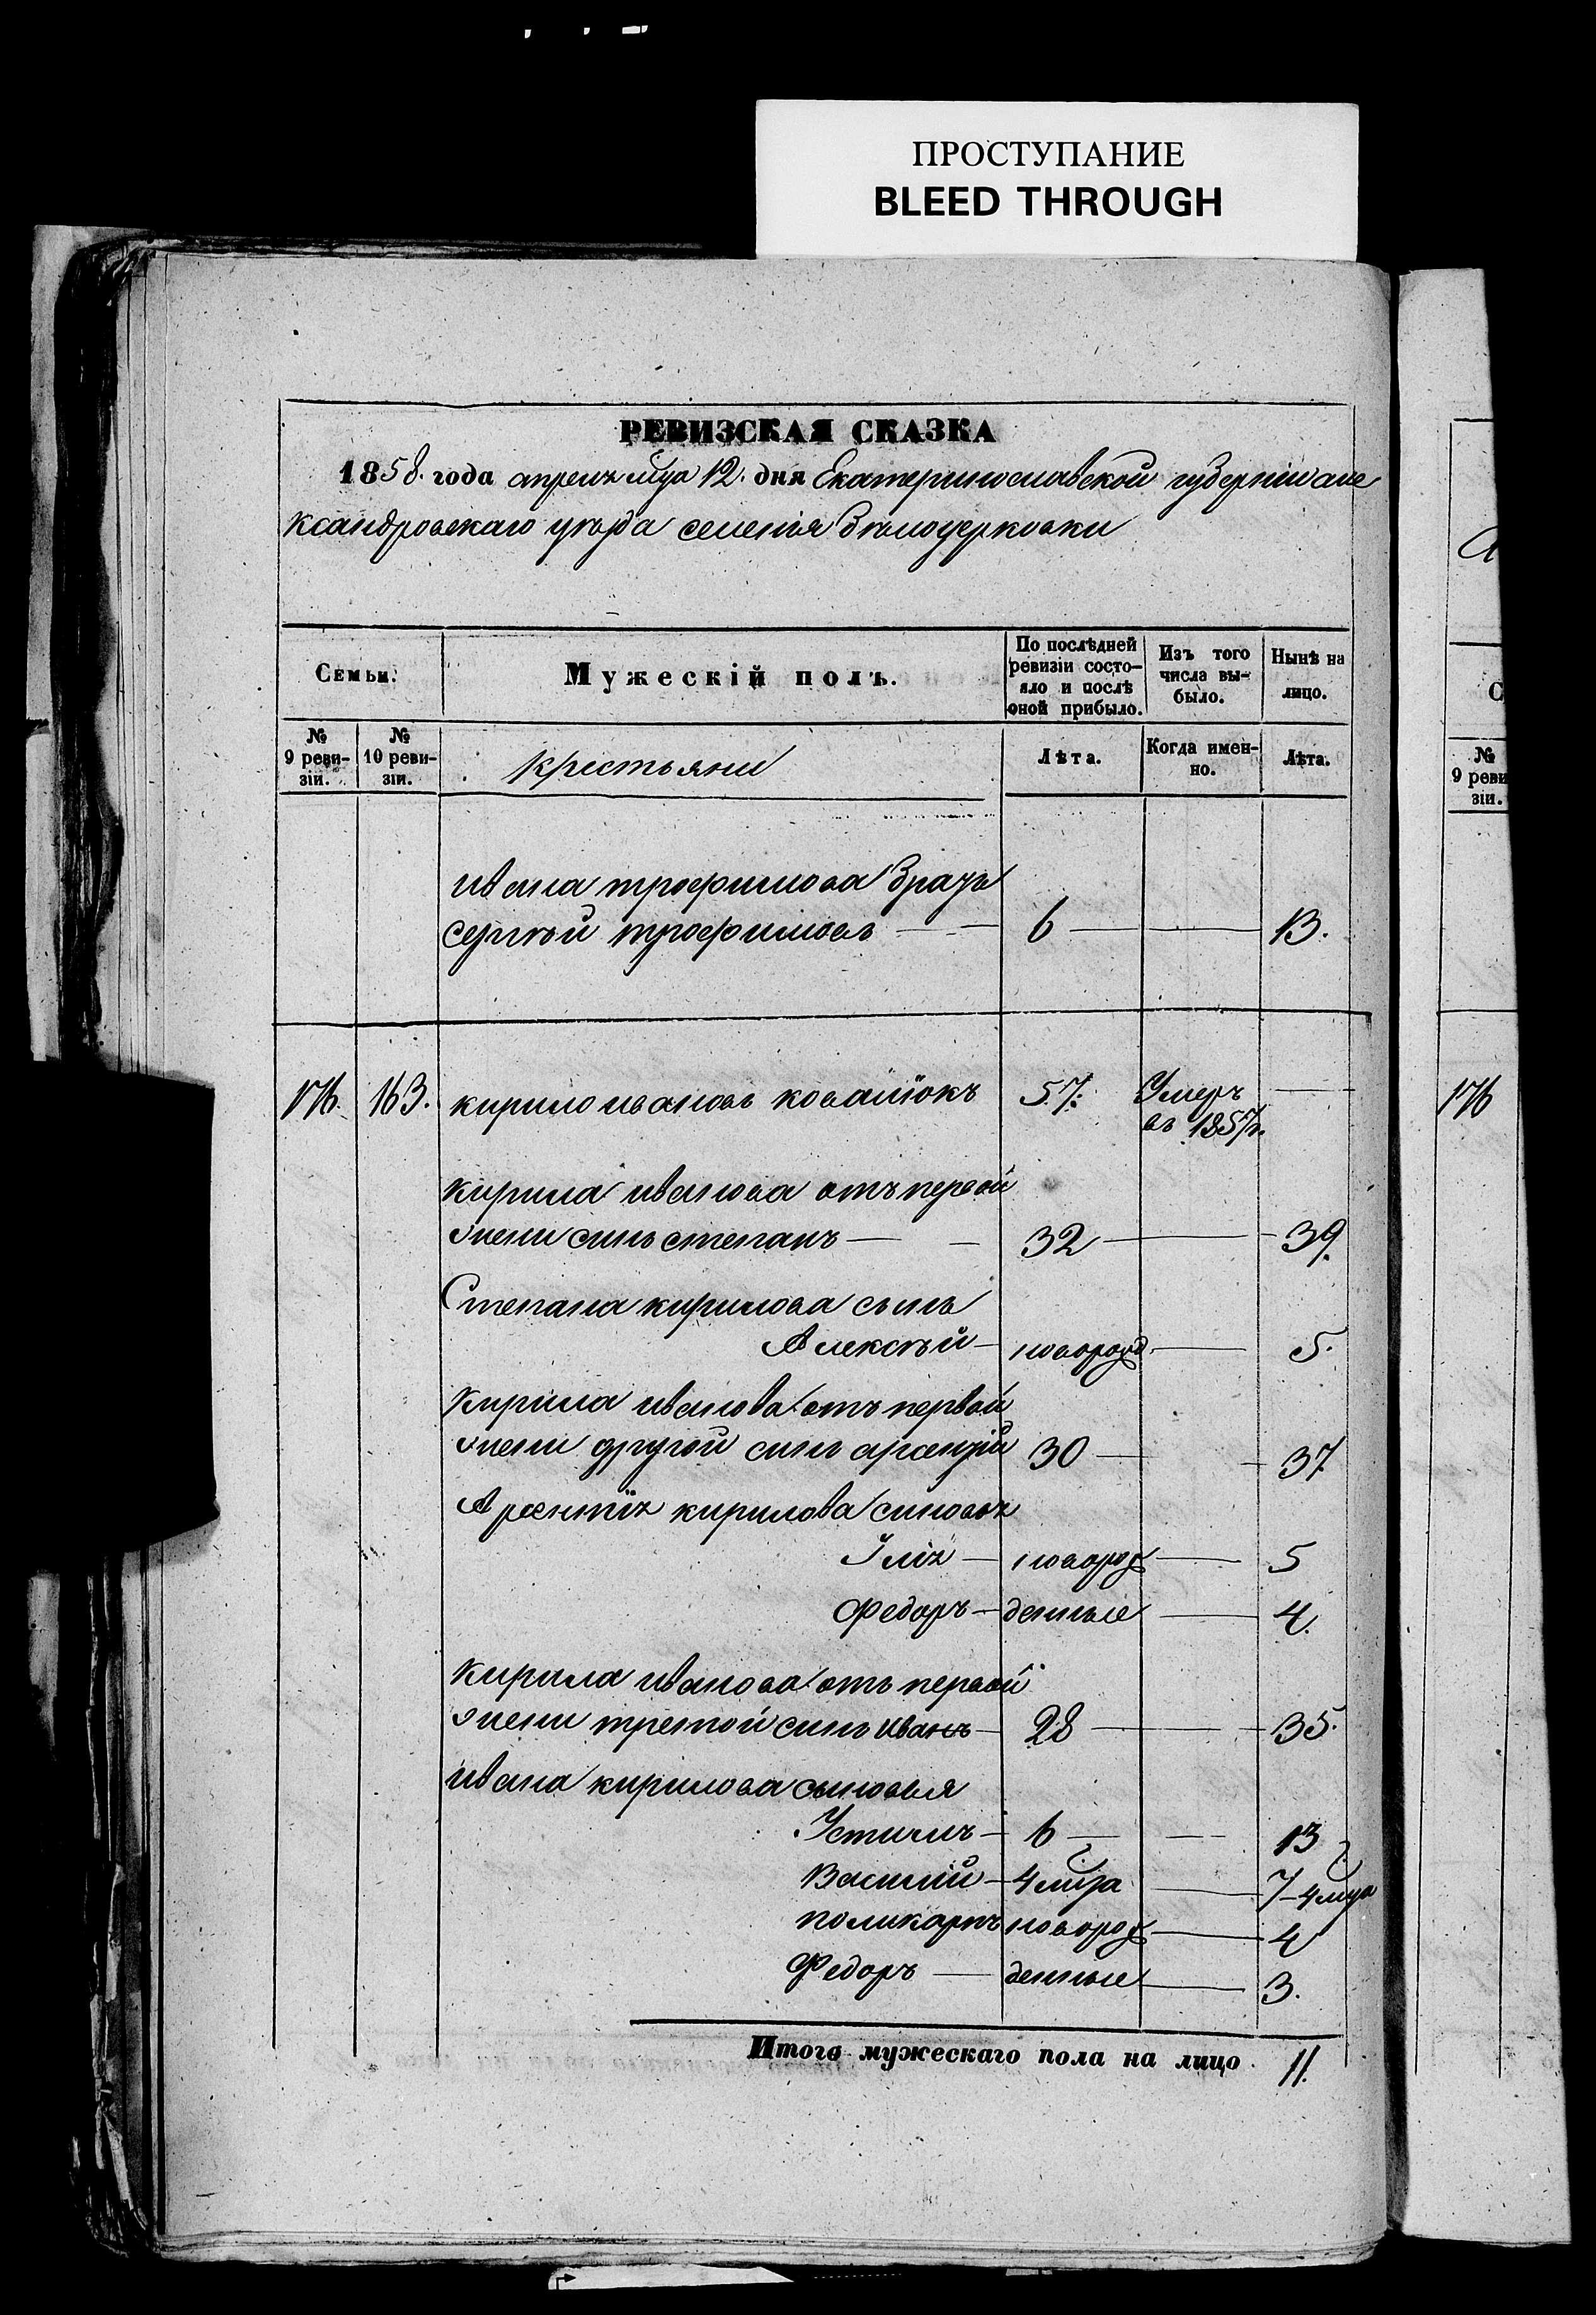 ПРОСТУПАНИЕ
BLEED THROUGH
РЕВИЗСКАЯ СКАЗКА
1858. года апреля мца 12. дня Екатеринославской губерніи але
ксандровскаго уѣзда селенія бѣлоцерковки
Семьи.
Мужескій полъ.
По послѣдней ревизіи состояло и послѣ оной прибыло.
Изъ того числа выбыло.
Нынѣ на лицо.
№ 9 ревизіи.
№ 10 ревизіи.
крестьяни
Лѣта.
Когда именно.
Лѣта.
ивана трофимова братъ
сергѣй трофимовъ — 6 — 13.
176. 163. кирило ивановъ 57. Умеръ —
въ 1857г.
кирила иванова отъ первой
жени синъ степанъ — 32 — 39.
Степана кирилова сынъ
Алексѣй — новорожд. — 5.
кирила иванова отъ первой
жени другой синъ арсентій 30 — 37
Арсентія кирилова синовья
Ілія — новорож — 5
Федоръ — денные — 4.
кирила иванова отъ первой
жени третой синъ иванъ — 28 — 35.
ивана кирилова сыновья
Устимъ — 6 — 13
Василій — 4 мца — 7-4 мца
поликарпъ новорож — 4
Федоръ — денные — 3.
Итого мужескаго пола на лицо. 11.
№
9 реви
зіи.
176